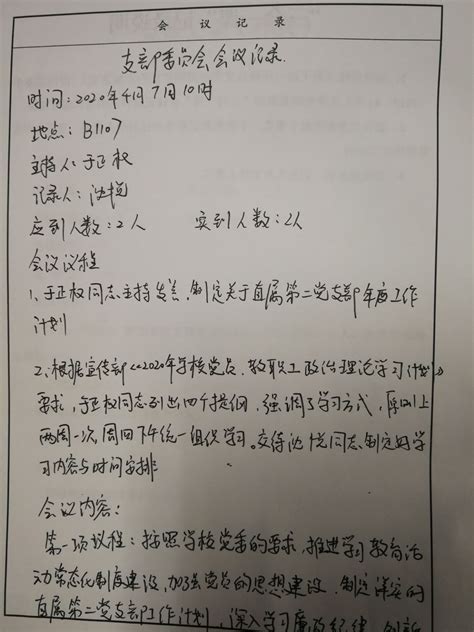 会议记录
支部委员会会议记录
时间：2020年4月7日10时
地点：B1107
主持人：于正权
记录人：沈悦
应到人数：2人 实到人数：2人
会议议程
1、于正权同志主持发言，制定关于直属第二党支部年度工作
计划
2、根据宣传部《2020年学校党员、教职工政治理论学习计划》
要求，于正权同志列出四个提纲，强调了学习方式，原则上
两周一次，周四下午统一组织学习。交待沈悦同志制定好学
习内容与时间安排
会议内容：
第一项议程：按照学校党委的要求，推进学习教育活
动常态化制度建设，加强党员的思想建设，制定详实的
直属第二党支部工作计划，深入学习廉政纪律，创新